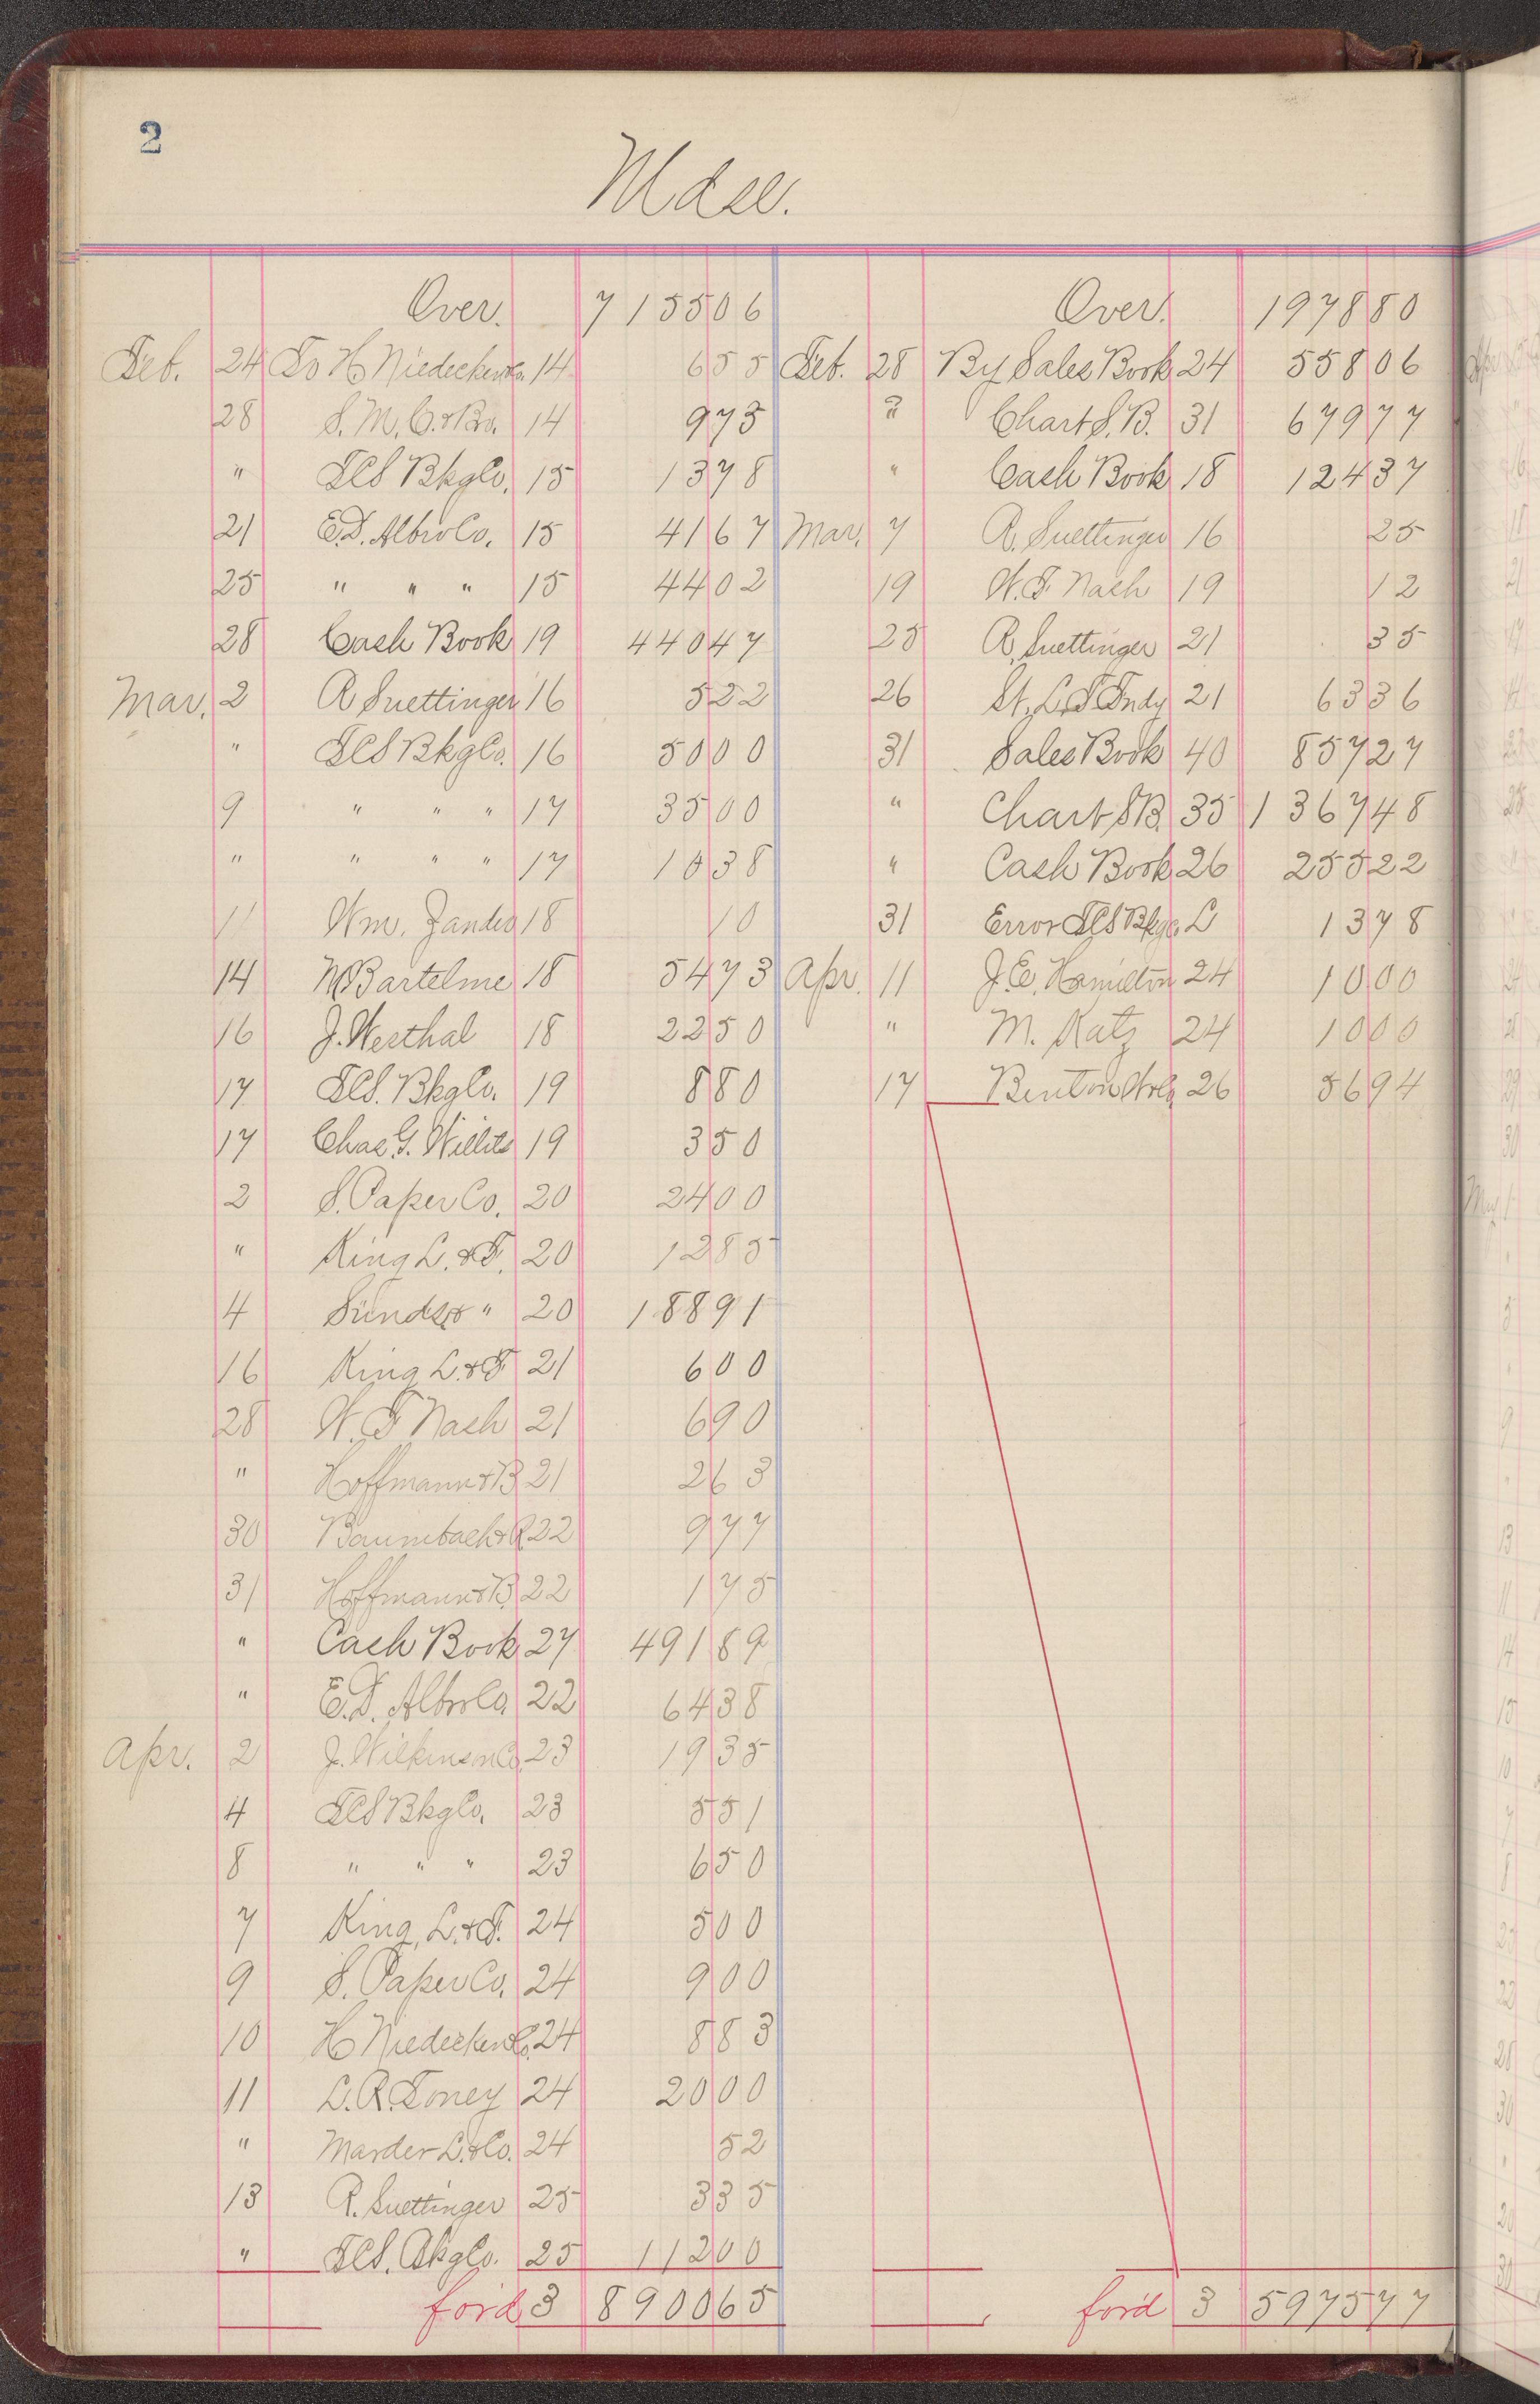 2
Mdse.
Over. 7 155 06
Feb. 24 To H Niedecken Co. 14 6 55
28 S. M. C. & Bro. 14 9 73
" TCS Bkg Co. 15 13 78
21 E. D. Albro Co. 15 41 67
25 " " " 15 44 02
28 Cash Book 19 440 47
Mar. 2 R Suettinger 16 5 22
" TCS Bkg Co. 16 50 00
9 " " " 17 35 00
" " " " 17 10 38
11 Wm. Zander 18 10
14 M Bartelme 18 54 73
16 J. Westhal 18 22 50
17 TCS. Bkg Co. 19 8 80
17 Chas. G. Willits 19 3 50
2 S. Paper Co. 20 24 00
" King L. & F. 20 12 85
4 Sunds. " 20 188 91
16 King L. & F 21 6 00
28 W. F Nash 21 6 90
" Hoffmann & B 21 2 63
30 Baumbach & R 22 9 77
31 Hoffmann & B. 22 1 75
" Cash Book 27 491 89
" E. D. Albro Co. 22 64 38
Apr. 2 J. Wilkinson Co. 23 19 35
4 TCS Bkg Co. 23 5 51
8 " " " 23 6 50
7 King, L. & F. 24 5 00
9 S. Paper Co. 24 9 00
10 H Niedecken Co. 24 8 83
11 L. R. Toney 24 20 00
" Marder L. & Co. 24 52
13 R. Suettinger 25 3 35
" TCS. Bkg Co. 25 112 00
for'd 3 8900 65
Over. 1978 80
Feb. 28 By Sales Book 24 558 06
" Chart S. B. 31 679 77
" Cash Book 18 124 37
Mar. 7 R. Suettinger 16 25
19 W. F. Nash 19 12
25 R. Suettinger 21 35
26 St. L. T Fndy 21 63 36
31 Sales Book 40 857 27
" Chart S B. 35 1 367 48
" Cash Book 26 255 22
31 Error TCS Bkg Co. L 13 78
Apr. 11 J. E. Hamilton 24 10 00
" M. Katz 24 10 00
17 Benton 26 56 94
for'd 3 5975 77